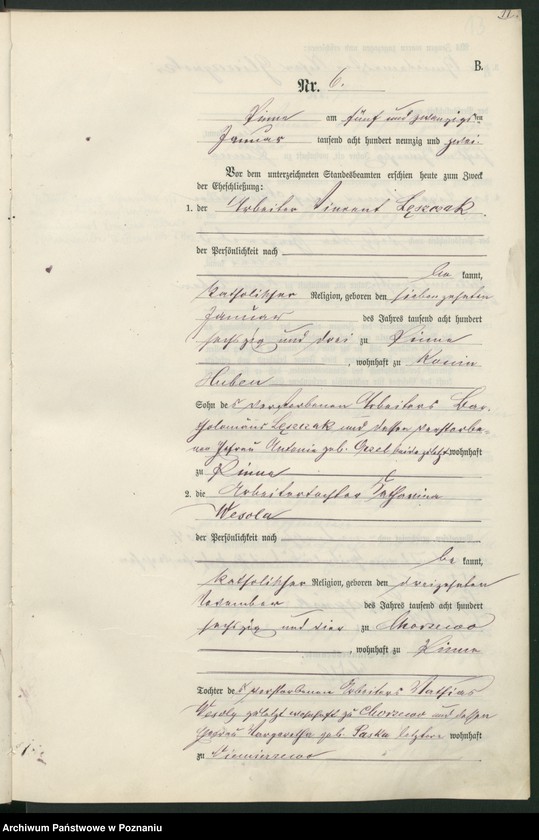 B.
Nr. 6.
Pinne am fünf und zwanzigsten
Januar tausend acht hundert neunzig und zwei
Vor dem unterzeichneten Standesbeamten erschien heute zum Zweck
der Eheschließung:
1. der Arbeiter Vincent
der Persönlichkeit nach
be kannt,
katholischer Religion, geboren den siebenzehnten
Januar des Jahres tausend acht hundert
sechzig und drei zu Pinne
, wohnhaft zu Konin
Huben
Sohn des verstorbenen Arbeiters Bar-
tholomäus und dessen verstorbe-
nen Ehefrau Antonie geb. beide zuletzt wohnhaft
zu Pinne
2. die Arbeitertochter Katharina
Wesola
der Persönlichkeit nach
be kannt,
katholischer Religion, geboren den dreizehnten
November des Jahres tausend acht hundert
sechzig und vier zu Chorzewo
, wohnhaft zu Pinne
Tochter des verstorbenen Arbeiters Mathias
Wesoly zuletzt wohnhaft zu Chorzewo und dessen
Ehefrau Margaretha geb. Paska letztere wohnhaft
zu
Archiwum Państwowe w Poznaniu